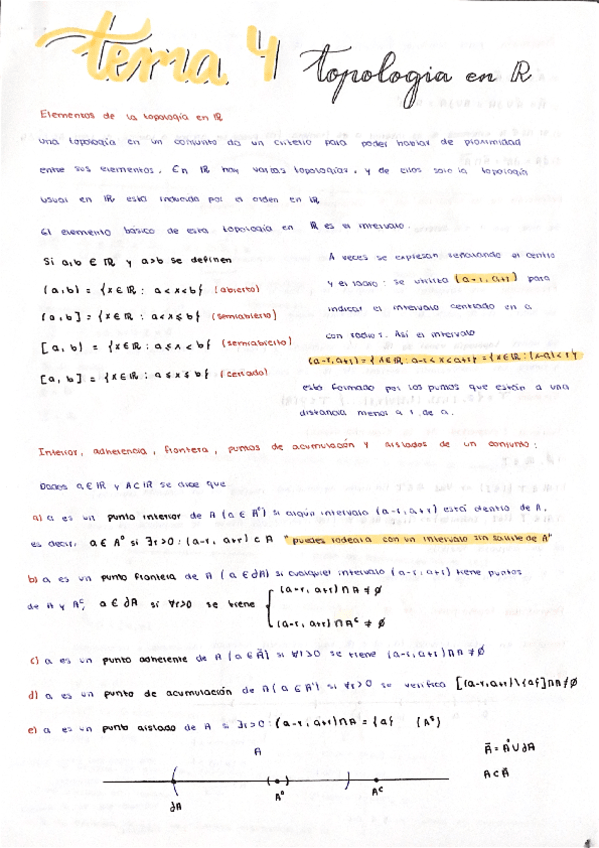 tema 4 topología en R
Elementos de la topología en IR
Una topología en un conjunto da un criterio para poder hablar de proximidad
entre sus elementos. En IR hay varias topologías, y de ellas solo la topología
usual en IR está inducida por el orden en IR
El elemento básico de esta topología en IR es el intervalo.
Si a,b ∈ IR y a>b se definen
(a,b) = {x∈IR : a<x<b} (abierto)
(a,b] = {x∈IR : a<x≤b} (semiabierto)
[a,b) = {x∈IR : a≤x<b} (semiabierto)
[a,b] = {x∈IR : a≤x≤b} (cerrado)
A veces se expresan señalando el centro
y el radio: se utiliza (a-r, a+r) para
indicar el intervalo centrado en a
con radio r. Así el intervalo
(a-r,a+r) = {x∈IR: a-r<x<a+r} = {x∈IR: |x-a|<r}
está formado por los puntos que están a una
distancia menor a r de a.
Interior, adherencia, frontera, puntos de acumulación y aislados de un conjunto:
Dados a∈IR y A⊂IR se dice que
a) a es un punto interior de A (a∈A°) si algún intervalo (a-r, a+r) está dentro de A,
es decir, a∈A° si ∃r>0 : (a-r, a+r) ⊂ A "puedes rodearla con un intervalo sin salirte de A"
b) a es un punto frontera de A (a∈∂A) si cualquier intervalo (a-r, a+r) tiene puntos
de A y Aᶜ, a∈∂A si ∀r>0 se tiene { (a-r, a+r)∩A ≠ ∅
(a-r, a+r)∩Aᶜ ≠ ∅
c) a es un punto adherente de A (a∈Ā) si ∀r>0 se tiene (a-r, a+r)∩A≠∅
d) a es un punto de acumulación de A (a∈A') si ∀r>0 se verifica [(a-r,a+r)\{a}]∩A≠∅
e) a es un punto aislado de A si ∃r>0 : (a-r, a+r)∩A = {a} (Aˢ)
A
Ā = A°∪∂A
A⊂Ā
∂A A° Aᶜ